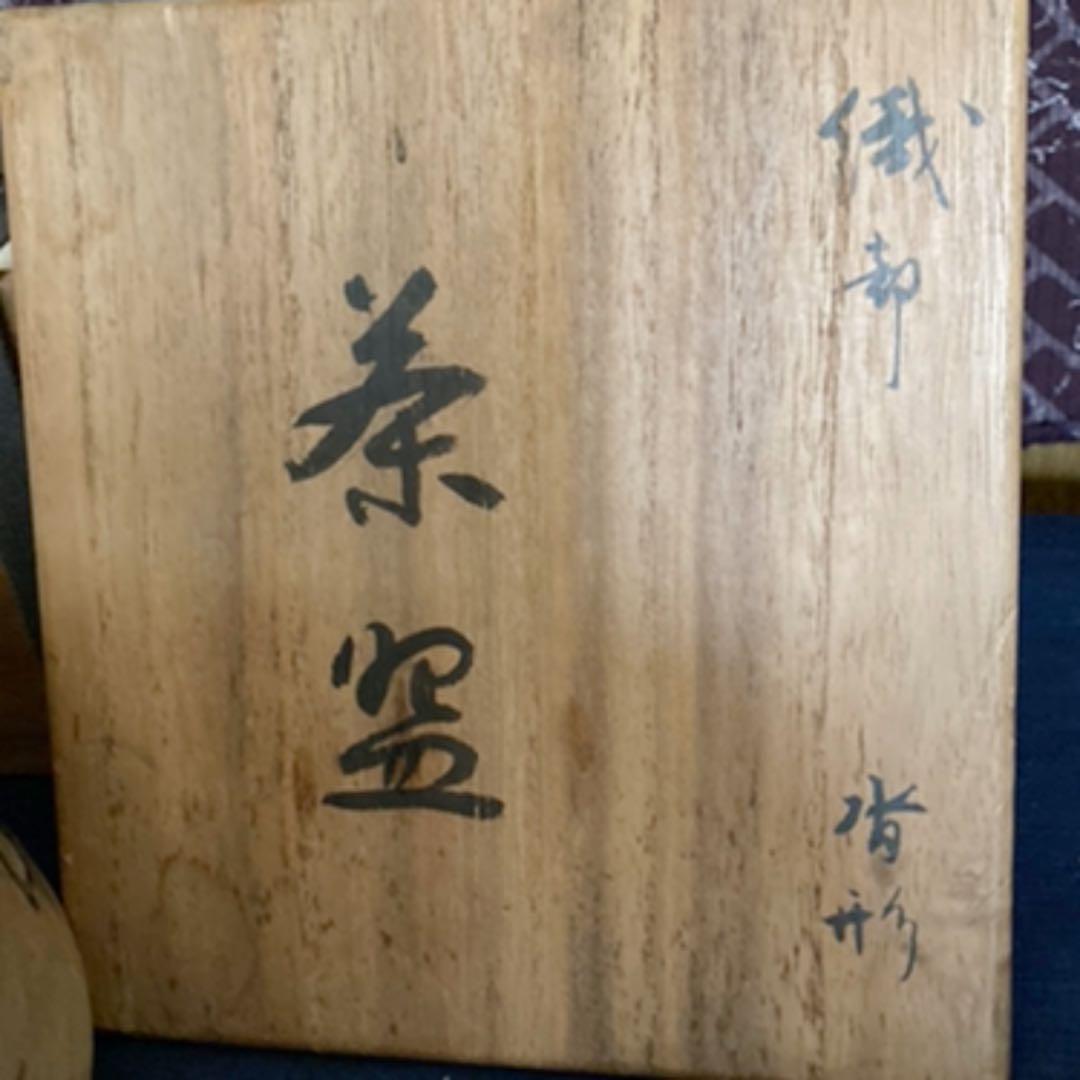 織部 沓形
茶盌